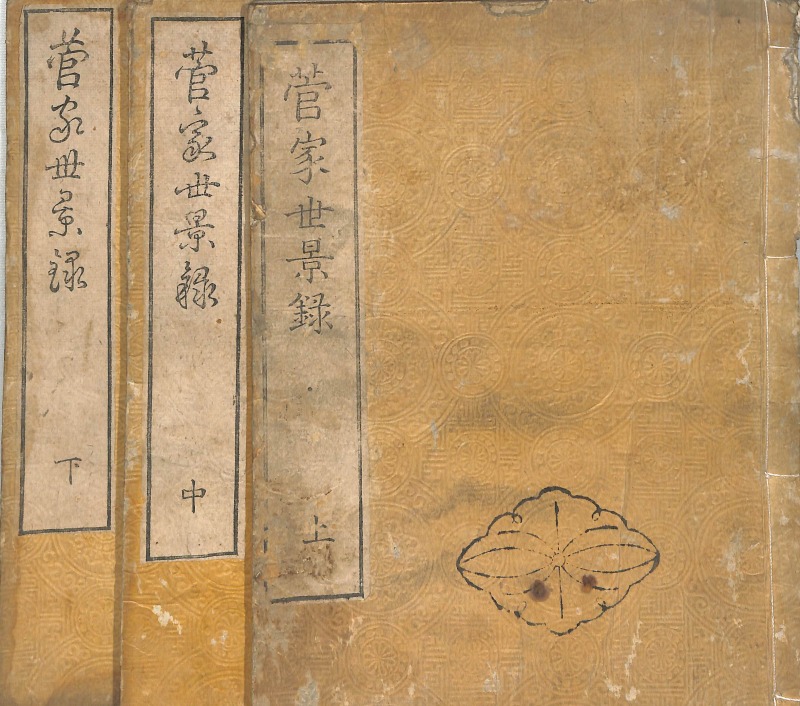 菅家世景録
上
菅家世景録
中
菅家世景録
下